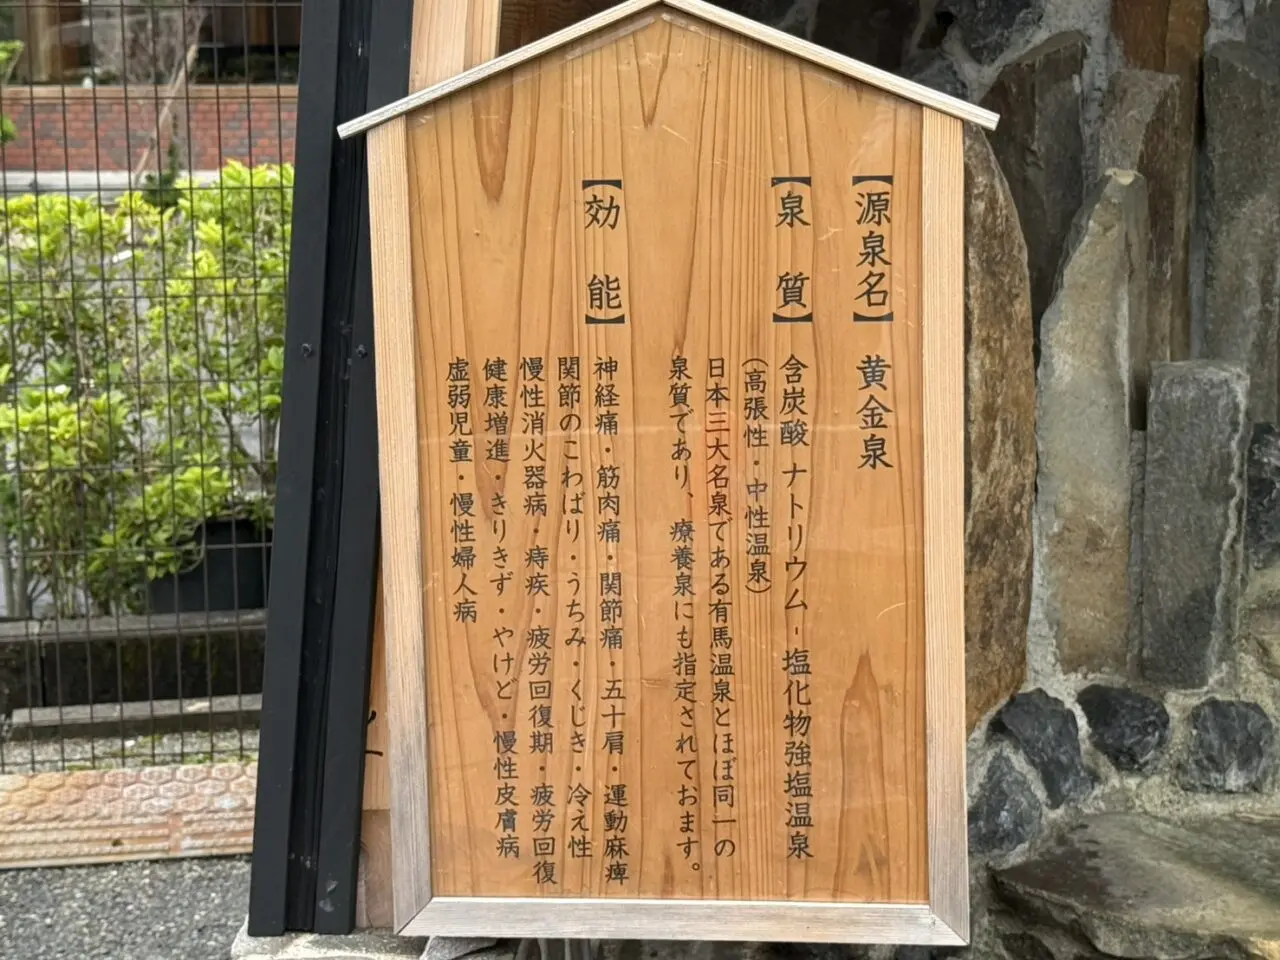 【源泉名】 黄金泉
【泉質】 含炭酸 ナトリウム-塩化物強塩温泉
(高張性・中性温泉)
日本三大名泉である有馬温泉とほぼ同一の
泉質であり、療養泉にも指定されております。
【効能】 神経痛・筋肉痛・関節痛・五十肩・運動麻痺
関節のこわばり・うちみ・くじき・冷え性
慢性消火器病・痔疾・疲労回復期・疲労回復
健康増進・きりきず・やけど・慢性皮膚病
虚弱児童・慢性婦人病